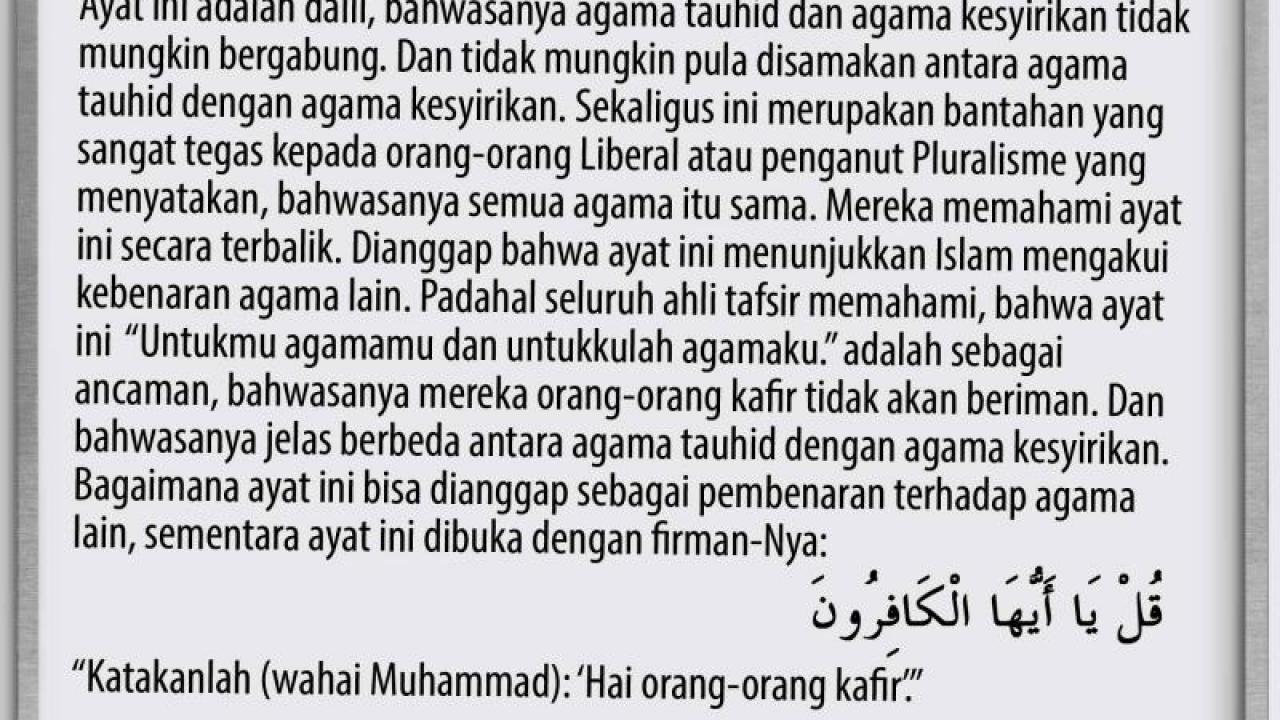 Ayat ini adalah dalil, bahwasanya agama tauhid dan agama kesyirikan tidak
mungkin bergabung. Dan tidak mungkin pula disamakan antara agama
tauhid dengan agama kesyirikan. Sekaligus ini merupakan bantahan yang
sangat tegas kepada orang-orang Liberal atau penganut Pluralisme yang
menyatakan, bahwasanya semua agama itu sama. Mereka memahami ayat
ini secara terbalik. Dianggap bahwa ayat ini menunjukkan Islam mengakui
kebenaran agama lain. Padahal seluruh ahli tafsir memahami, bahwa ayat
ini “Untukmu agamamu dan untukkulah agamaku.” adalah sebagai
ancaman, bahwasanya mereka orang-orang kafir tidak akan beriman. Dan
bahwasanya jelas berbeda antara agama tauhid dengan agama kesyirikan.
Bagaimana ayat ini bisa dianggap sebagai pembenaran terhadap agama
lain, sementara ayat ini dibuka dengan firman-Nya:
قُلْ يَا أَيُّهَا الْكَافِرُونَ
“Katakanlah (wahai Muhammad): ‘Hai orang-orang kafir’.”